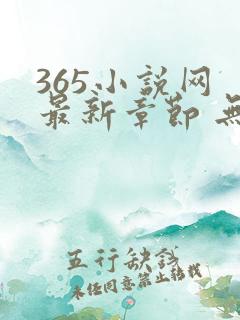 365小説网
最新章節 無
五行缺钱
未经同意禁止转载